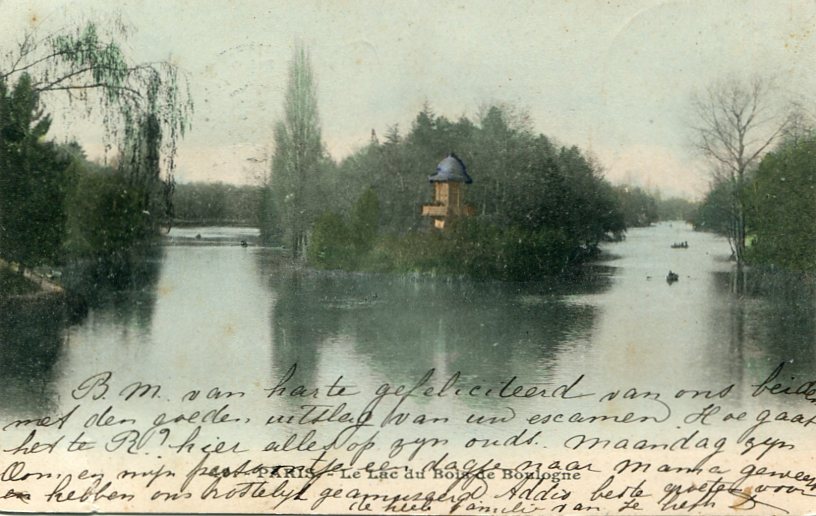 B. M. van harte gefeliciteerd van ons beide
met den goeden uitslag van uw escamen. Hoe gaat
het te R.? hier alles op zyn oudst. maandag zyn
Oom en mijn persoontje een dagje naar Mama geweest
PARIS. - Le Lac du Bois de Boulogne
en hebben ons kostelijk geamuseerd. Addio beste groeten voor
de heele familie van